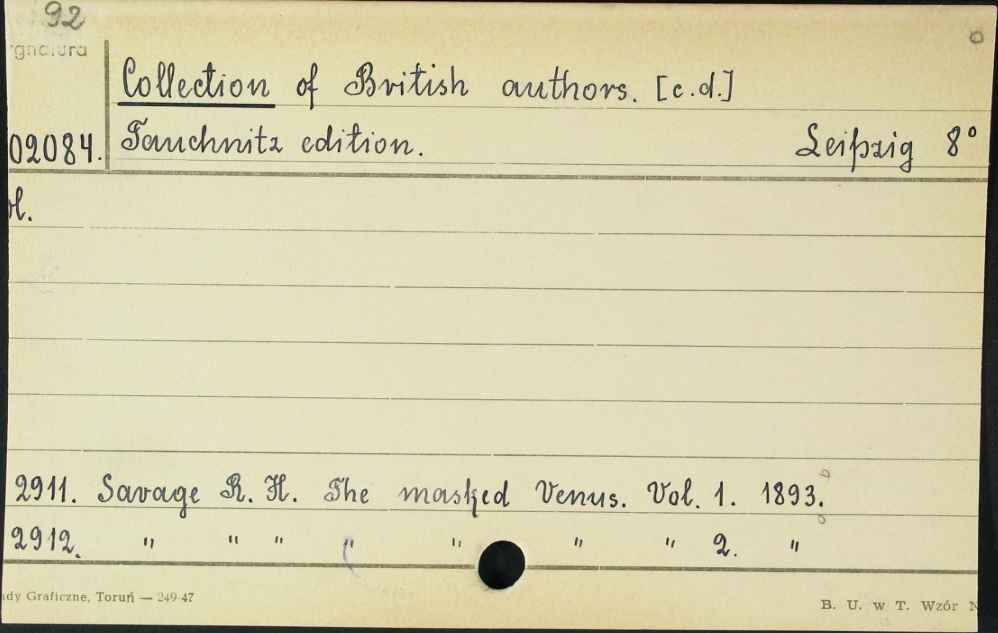 92
gnatura
Collection of British authors. [c.d.]
02084. Tauchnitz edition. Leipzig 8°
ol.
2911. Savage R. H. The masked Venus. Vol. 1. 1893.
2912. " " " " " " " 2. "
dy Graficzne, Toruń — 249-47
B. U. w T. Wzór N